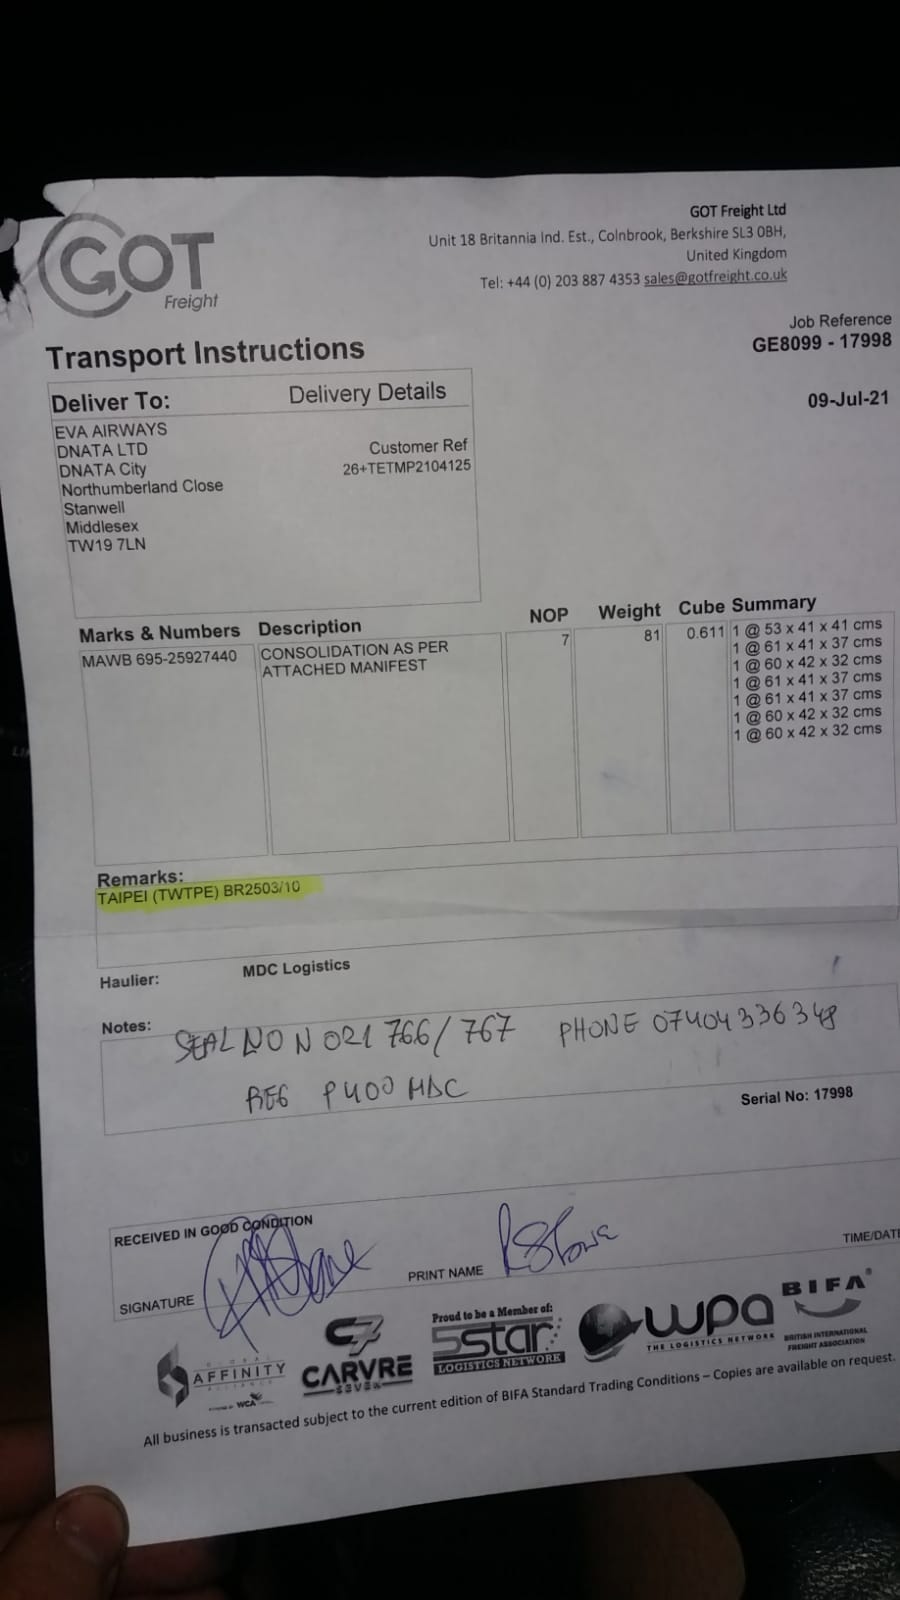 GOT
Freight
GOT Freight Ltd
Unit 18 Britannia Ind. Est., Colnbrook, Berkshire SL3 0BH,
United Kingdom
Tel: +44 (0) 203 887 4353 sales@gotfreight.co.uk
Job Reference
GE8099 - 17998
09-Jul-21
Transport Instructions
Deliver To: Delivery Details
EVA AIRWAYS
DNATA LTD
DNATA City
Northumberland Close
Stanwell
Middlesex
TW19 7LN
Customer Ref
26+TETMP2104125
Marks & Numbers Description NOP Weight Cube Summary
MAWB 695-25927440 CONSOLIDATION AS PER 7 81 0.611 1 @ 53 x 41 x 41 cms
ATTACHED MANIFEST 1 @ 61 x 41 x 37 cms
1 @ 60 x 42 x 32 cms
1 @ 61 x 41 x 37 cms
1 @ 61 x 41 x 37 cms
1 @ 60 x 42 x 32 cms
1 @ 60 x 42 x 32 cms
Remarks:
TAIPEI (TWTPE) BR2503/10
Haulier: MDC Logistics
Notes:
SEAL NO N 021 766/767 PHONE 07404336348
REG P400 MDC
Serial No: 17998
RECEIVED IN GOOD CONDITION
SIGNATURE PRINT NAME TIME/DATE
GLOBAL
AFFINITY
ALLIANCE
WCA
C7
CARVRE
SEVEN
Proud to be a Member of:
5star
LOGISTICS NETWORK
wpa
THE LOGISTICS NETWORK
BIFA
BRITISH INTERNATIONAL
FREIGHT ASSOCIATION
All business is transacted subject to the current edition of BIFA Standard Trading Conditions – Copies are available on request.